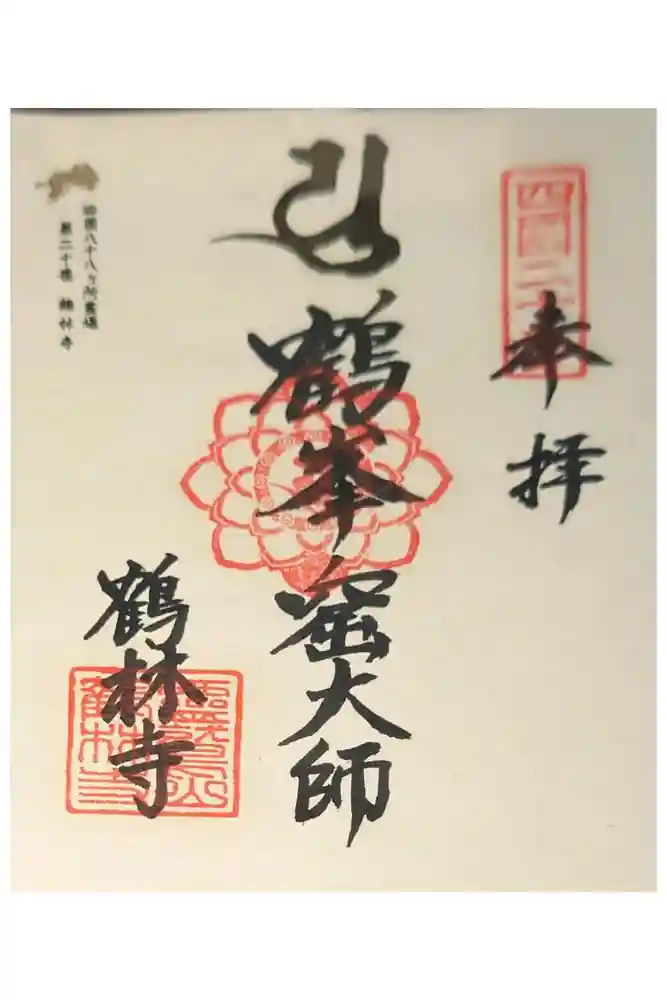 奉拝
鶴峯窟大師
鶴林寺
四国八十八ヶ所霊場
第二十番 鶴林寺
四国二十
鶴林寺